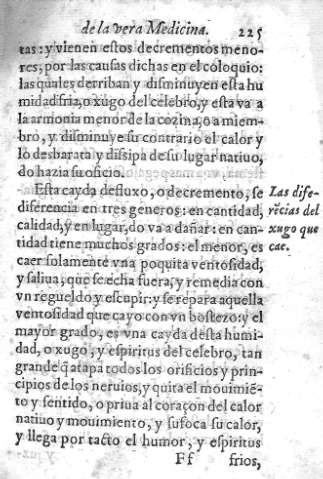 de la vera Medicina. 225
tas: y vienen estos decrementos meno-
res, por las causas dichas en el coloquio:
las quales derriban y disminuyen esta hu
midad fria, o xugo del celebro, y esta va a
la armonia menor de la cozina, o a miem-
bro, y disminuye su contrario el calor y
lo desbarata y dissipa de su lugar natiuo,
do hazia su oficio.
Esta cayda de fluxo, o decremento, se
diferencia en tres generos: en cantidad,
calidad, y en lugar, do va a dañar: en can-
tidad tiene muchos grados: el menor, es
caer solamente vna poquita ventosidad,
y saliua, que se echa fuera, y remedia con
vn regueldo y escupir: y se repara aquella
ventosidad que cayo con vn bostezo: y el
mayor grado, es vna cayda desta humi-
dad, o xugo, y espiritus del celebro, tan
grande q̃ atapa todos los orificios y prin-
cipios de los neruios, y quita el mouimiẽ-
to y sentido, o priua al coraçon del calor
natiuo y mouimiento, y sufoca su calor,
y llega por tacto el humor, y espiritus
Ff frios,
Las dife-
rẽcias del
xugo que
cae.